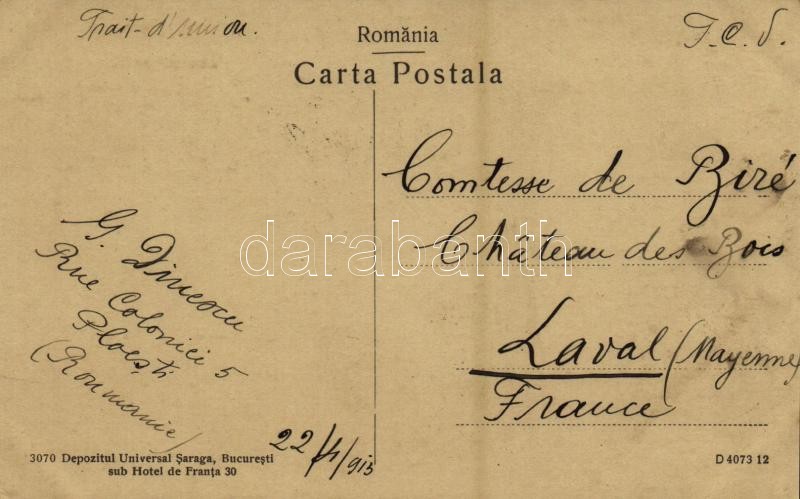 Trait-d'union.
România
Carta Postala
T. C. V.
Comtesse de Biré
Château des Bois
Laval (Mayenne)
France
G. Dinescu
Rue Colonici 5
Ploești
(Roumanie)
22/4/913
darabanth
3070 Depozitul Universal Șaraga, București
sub Hotel de Franța 30
D 4073 12